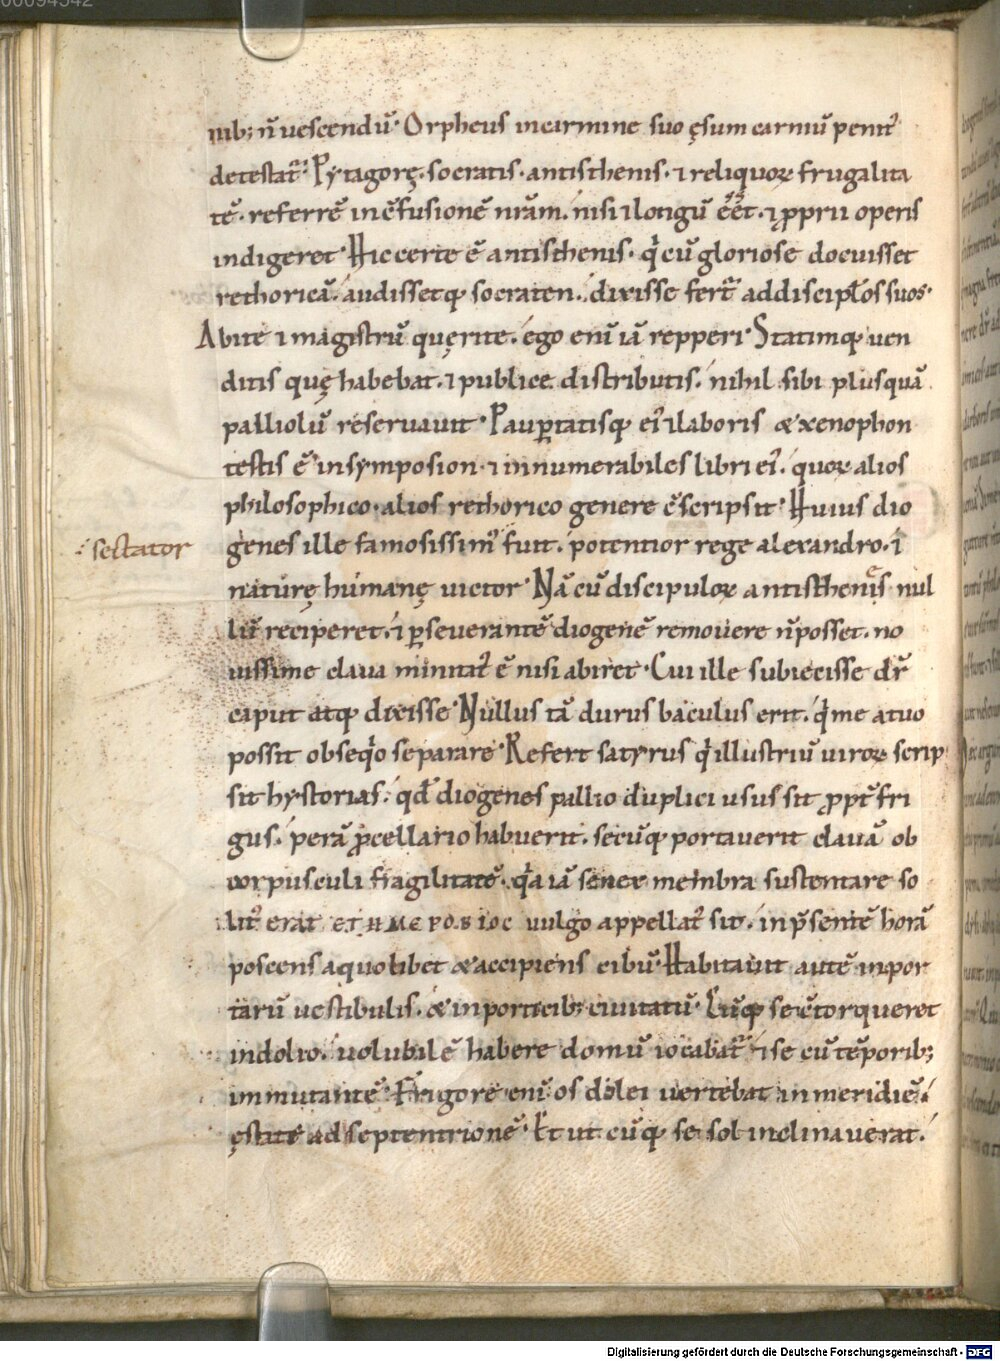 nib; n̄ uescendū· Orpheus incarmine suo ęsum carniū penit᷒
detestat᷒· Pytagorę· socratis· antisthenis· ⁊ reliquoꝝ frugalita
tē· referrē in c̄fusionē nr̄am· nisi ⁊ longū ēēt· ⁊ ꝓprii operis
indigeret· Hic certe ē antisthenis· qͥ cū gloriose docuisset
rethoricā· audissetq; socraten· dixisse fert᷒ ad discipl̄os suos·
Abite ⁊ magistrū quęrite· ego enī iā repperi· Statimq; uen
ditis quę habebat· ⁊ publice distributis· nihil sibi plusquā
palliolū reseruauit· Pauꝑtatisq; ei᷒ ⁊ laboris & xenophon
testis ē in symposion· ⁊ innumerabiles libri ei᷒· quoꝝ alios
philosophico· alios rethorico genere c̄scripsit· Huius dio
: sectator
genes ille famosissim᷒ fuit· potentior rege alexandro· ⁊
naturę humanę uictor· Nā cū discipuloꝝ antisthenis nul
lū reciperet· ⁊ ꝑseuerantē diogenē remouere n̄ posset· no
uissime claua minitat᷒ ē nisi abiret· Cui ille subiecisse dr̄
caput atq; dixisse· Nullus tā durus baculus erit· qͥ me a tuo
possit obseqͥo separare· Refert satyrus qͥ illustriū uiroꝝ scrip
sit hystorias· qd̄ diogenes pallio duplici usus sit ꝓpt̄ fri
gus· perā ꝓ cellario habuerit· secūq; portauerit clauā ob
corpusculi fragilitatē· qͥa iā senex membra sustentare so
lit᷒ erat ΕΤΗΜΕΡΟΒΙΟC uulgo appellat᷒ sit· in p̄sentē horā
poscens a quolibet & accipiens cibū· Habitauit autē in por
tarū uestibulis· & in porticib; ciuitatū· Cūq; se c̄torqueret
in dolio· uolubilē habere domū iocabat᷒ ⁊ se cū tēporib;
immutantē· Frigore enī os dolei uertebat in meridiē·
ęstate ad septentrionē· Et ut cūq; se sol inclinauerat·
Digitalisierung gefördert durch die Deutsche Forschungsgemeinschaft - DFG